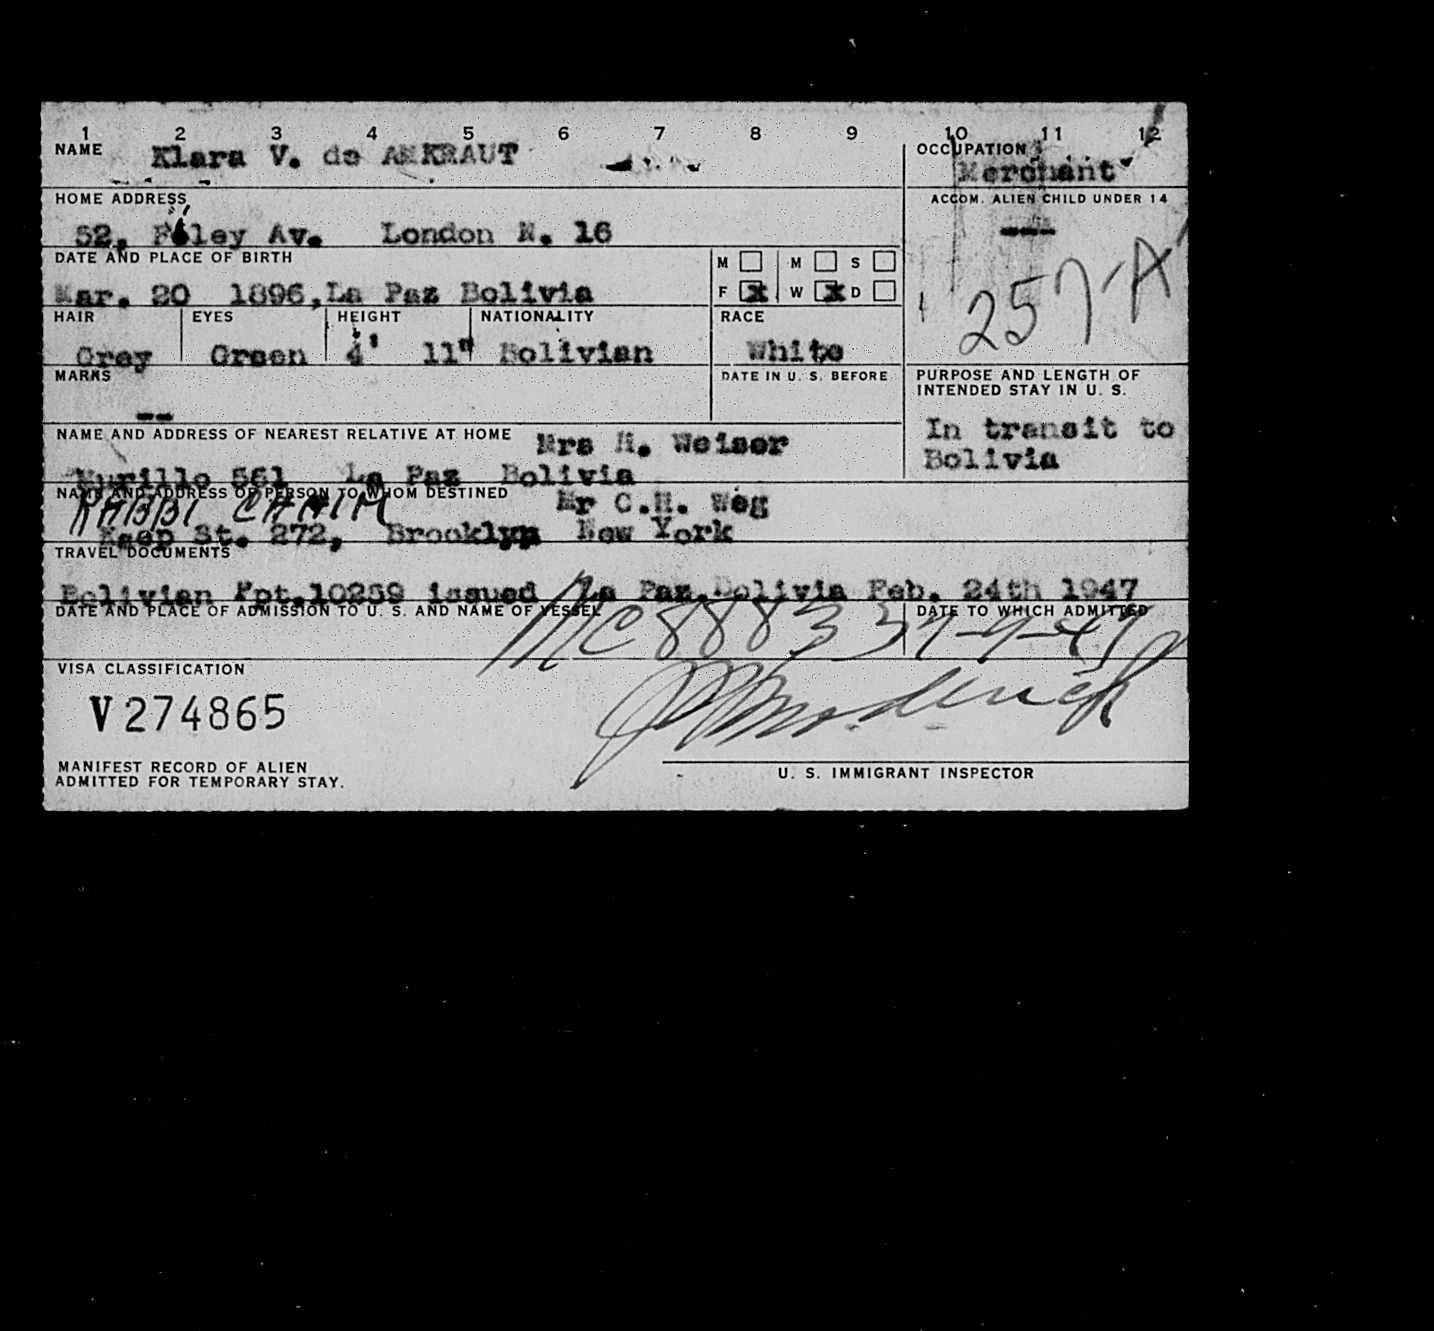 1 2 3 4 5 6 7 8 9 10 11 12
NAME Klara V. de AMKRAUT
OCCUPATION Merchant
HOME ADDRESS
52, Foley Av. London N. 16
ACCOM. ALIEN CHILD UNDER 14
---
DATE AND PLACE OF BIRTH
Mar. 20 1896, La Paz Bolivia
M M S
F X W X D
257-A
HAIR EYES HEIGHT NATIONALITY RACE
Grey Green 4' 11" Bolivian White
MARKS
--
DATE IN U. S. BEFORE
PURPOSE AND LENGTH OF
INTENDED STAY IN U. S.
In transit to
Bolivia
NAME AND ADDRESS OF NEAREST RELATIVE AT HOME Mrs H. Weiser
Murillo 561 La Paz Bolivia
NAME AND ADDRESS OF PERSON TO WHOM DESTINED Mr C.H. Weg
RABBI CHAIM
Keep St. 272, Brooklyn New York
TRAVEL DOCUMENTS
Bolivian Ppt.10259 issued La Paz.Bolivia Feb. 24th 1947
DATE AND PLACE OF ADMISSION TO U. S. AND NAME OF VESSEL
DATE TO WHICH ADMITTED
NC 88833 7-9-47
VISA CLASSIFICATION
V274865
MANIFEST RECORD OF ALIEN
ADMITTED FOR TEMPORARY STAY.
U. S. IMMIGRANT INSPECTOR